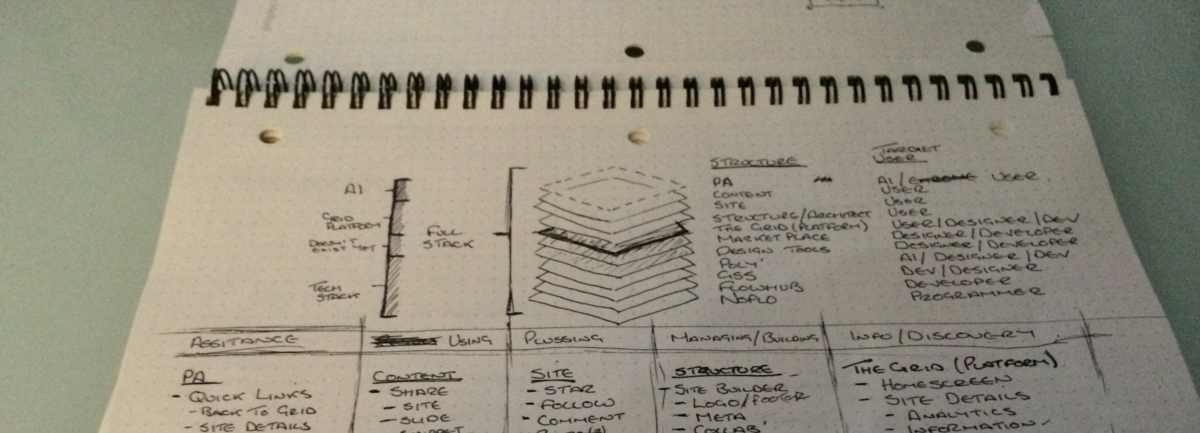 AI
GRID
PLATFORM
DOESN'T
EXIST YET
TECH
STACK
FULL
STACK
STRUCTURE
PA
CONTENT
SITE
STRUCTURE/ARCHITECT
THE GRID (PLATFORM)
MARKET PLACE
DESIGN TOOLS
POLY'
GSS
FLOWHUB
NOFLO
TARGET
USER
AI/ USER.
USER
USER
USER
USER/DESIGNER/DEV
DESIGNER/DEVELOPER
DESIGNER/DEVELOPER
AI/DESIGNER/DEV
DEV/DESIGNER
DEVELOPER
PROGRAMMER
ASSITANCE
USING
PLUSSING
MANAGING/BUILDING
INFO/DISCOVERY
PA
- QUICK LINKS
- BACK TO GRID
- SITE DETAILS
CONTENT
- SHARE
- SITE
- SLIDE
SITE
- STAR
- FOLLOW
- COMMENT
STRUCTURE
- SITE BUILDER
- LOGO/FOOTER
- META
- COLLAB'
THE GRID (PLATFORM)
- HOMESCREEN
- SITE DETAILS
- ANALYTICS
- INFORMATION